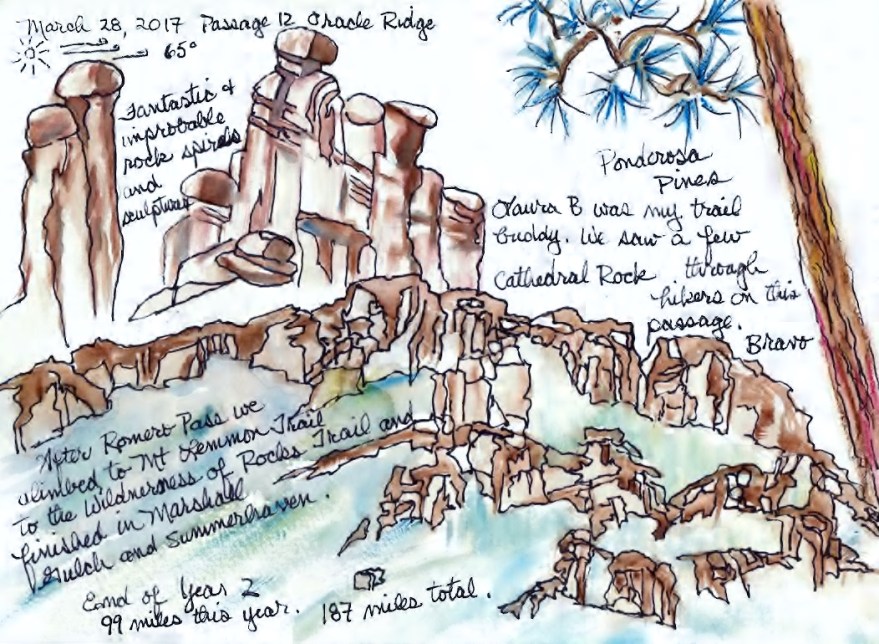 March 28, 2017 Passage 12 Oracle Ridge
65°
Fantastic &
improbable
rock spirals
and
sculptures
Ponderosa
Pines
Laura B was my trail
buddy. We saw a few
Cathedral Rock through
hikers on this
passage.
Bravo
After Romero Pass we
climbed to Mt Lemmon Trail
to the Wilderness of Rocks Trail and
finished in Marshall
Gulch and Summerhaven.
End of Year 2
99 miles this year. 187 miles total.